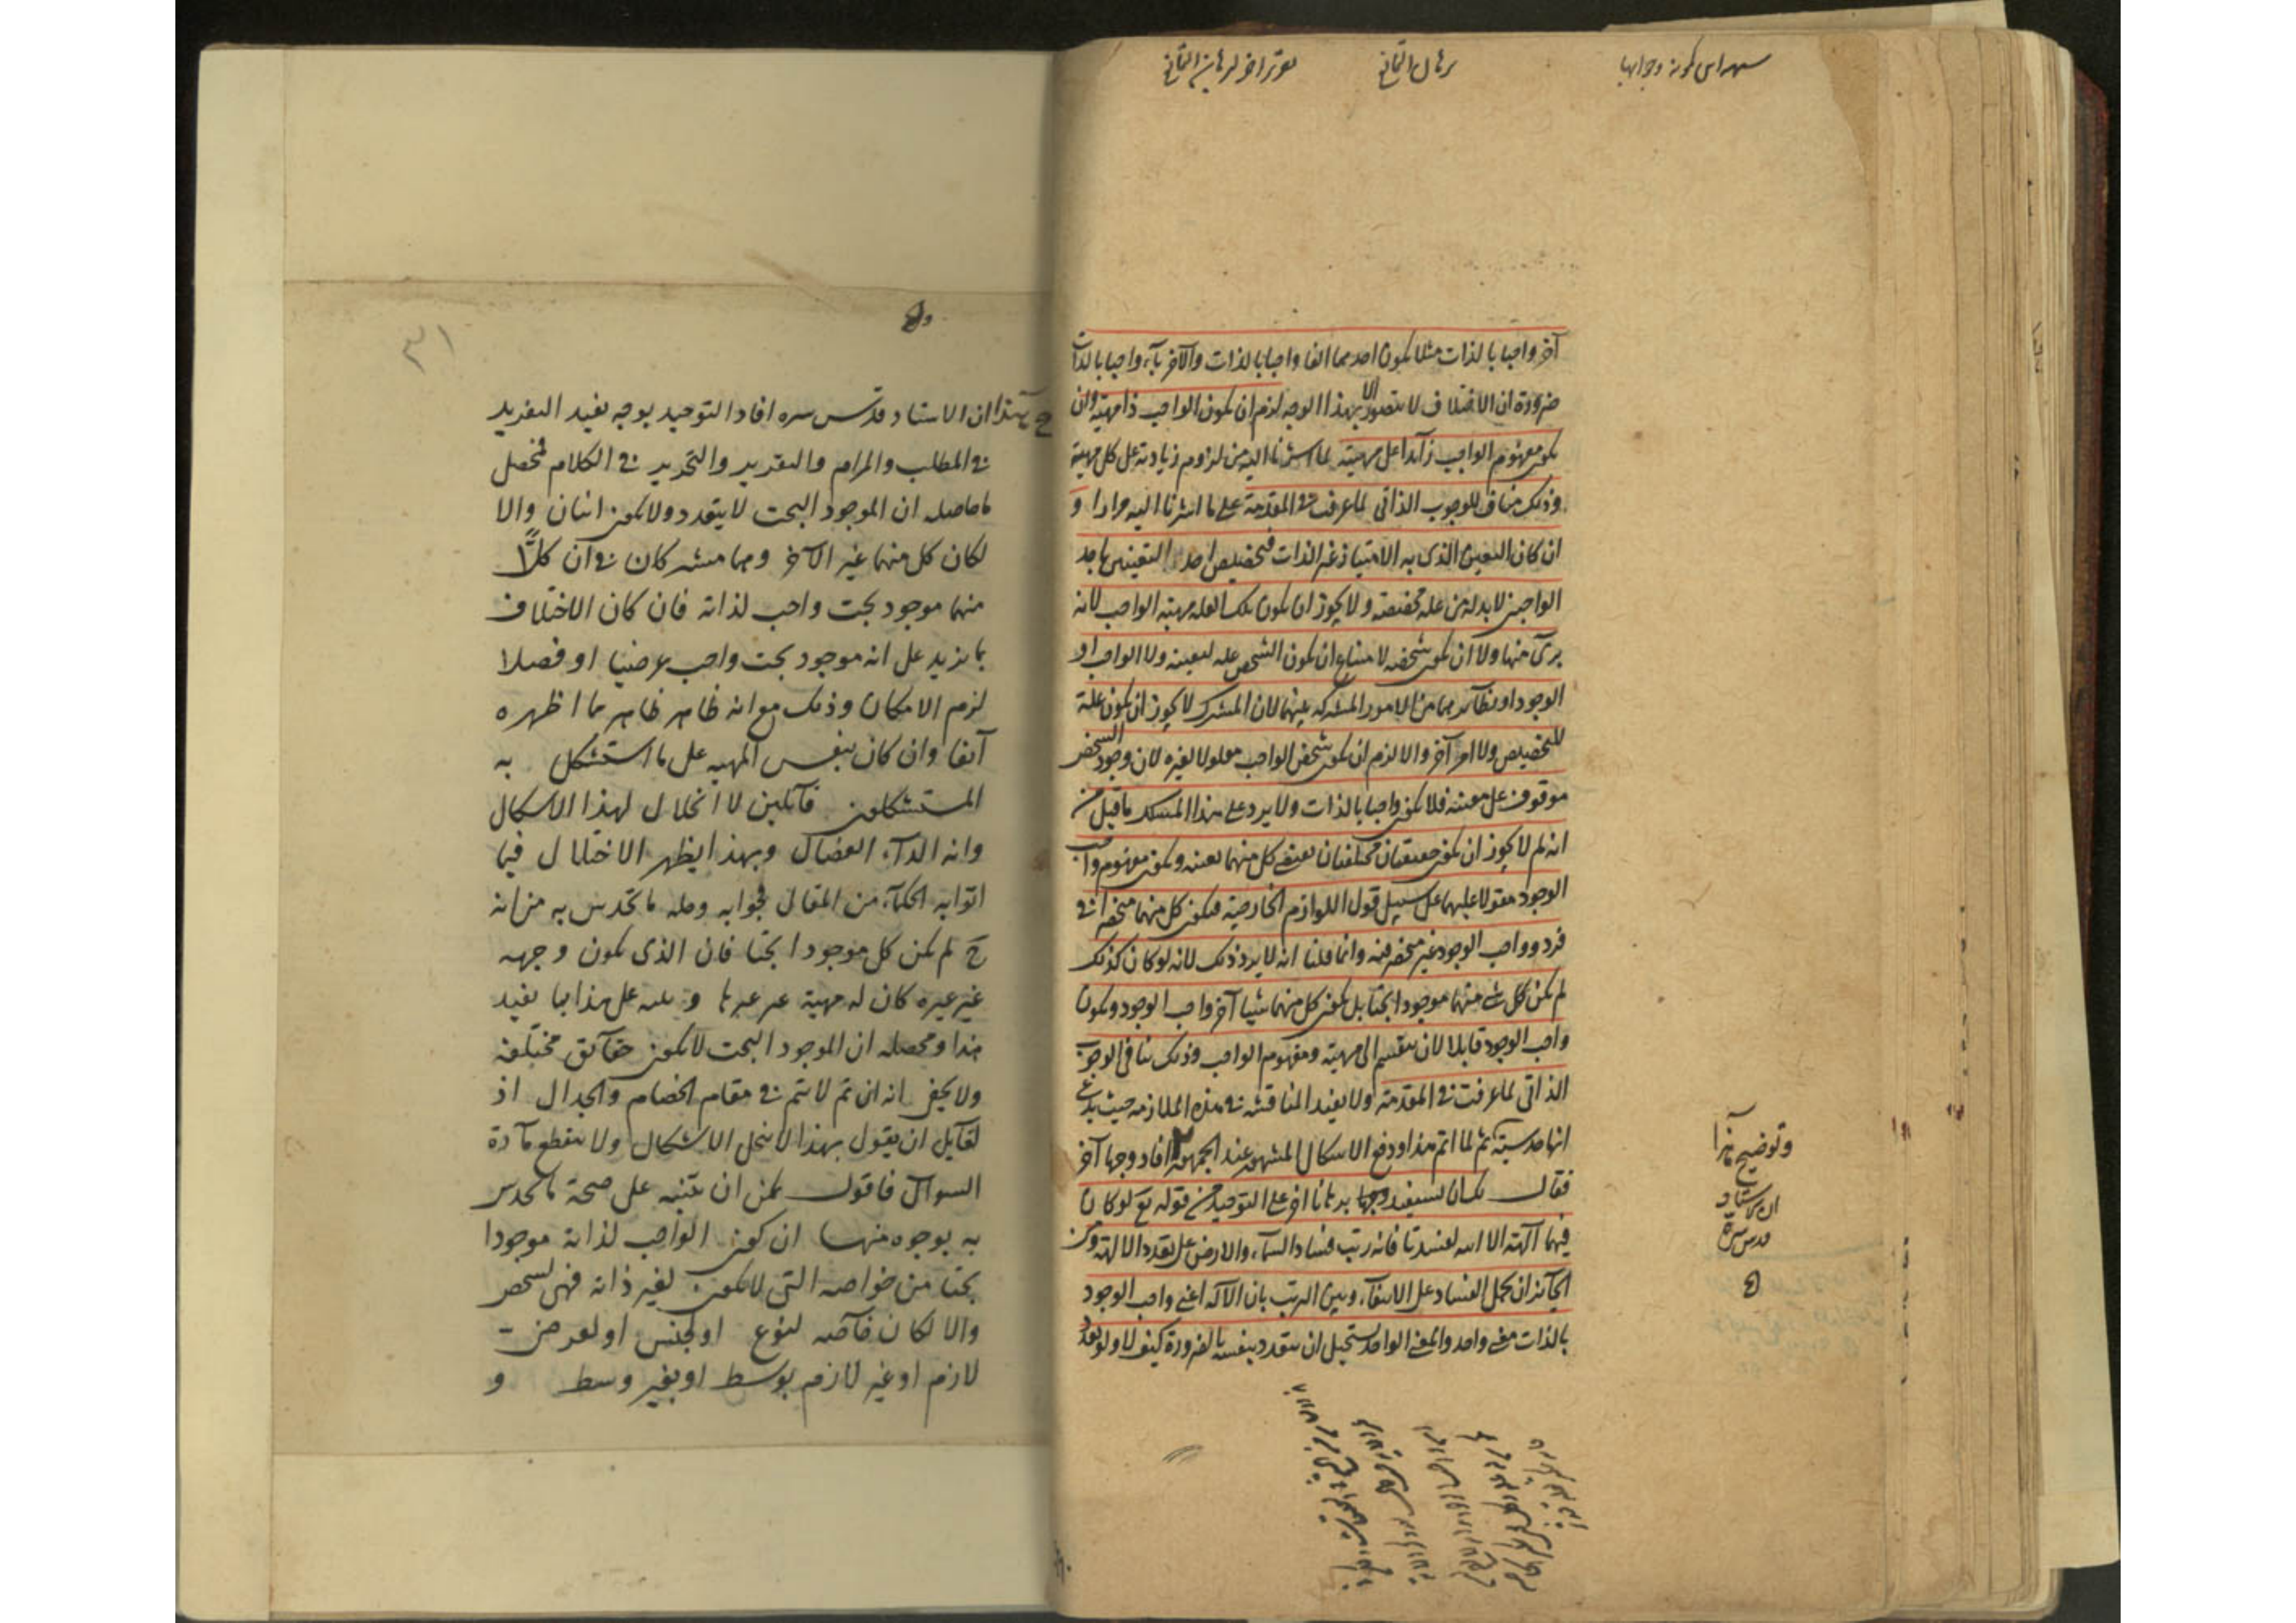 برهان التمانع
آخر واجبا بالذات مثلا يكون احدهما الفا واجبا بالذات والآخر باء واجبا بالذات
ضرورة ان الاختلاف لا يتصور الا بهذا الوجه لزم ان يكون الواجب ذا مهية وان
يكون مفهوم الواجب زائدا على مهيته لما اشرنا اليه من لزوم زيادته على كل مهية
وذلك مناف للوجوب الذاتي لما عرفت في المقدمة على ما اشرنا اليه مرارا و
ان كان التعين الذي به الامتياز غير الذات فتخصيص احد التعينين باحد
الواجبين لا بد له من علة مخصصة ولا يجوز ان يكون تلك العلة مهية الواجب لانه
برئ منها ولا ان يكون شخصه لامتناع ان يكون الشخص علة لتعينه ولا الواجب او
الوجود او نظائرهما من الامور المشتركة بينهما لان المشترك لا يجوز ان يكون علة
للتخصيص ولا امر آخر والا لزم ان يكون شخص الواجب معلولا لغيره لان وجود الشخص
موقوف على تعينه فلا يكون واجبا بالذات ولا يرد على هذا المسلك ما قيل من
انه لم لا يجوز ان يكون حقيقتان مختلفتان تقتضي كل منهما تعينه ويكون مفهوم واجب
الوجود مقولا عليهما على سبيل قول اللوازم الخارجية فيكون كل منهما منحصرا في
فرد وواجب الوجود غير منحصر فيه وانما قلنا انه لا يرد ذلك لانه لو كان كذلك
لم يكن كل شئ منهما موجودا بحتا بل يكون كل منهما شيئا آخر واجب الوجود ويكون
واجب الوجود قابلا لان ينقسم الى مهية ومفهوم الواجب وذلك ينافي الوجوب
الذاتي لما عرفت في المقدمة ولا يفيد المناقشة في هذه الملازمة حيث يدعى
انها حدسية ثم لما اتم هذا ودفع الاشكال المشهور عند الجمهور افاد وجها آخر
فقال يمكن ان يستفيد وجها برهانا آخر على التوحيد من قوله تع لو كان
فيهما آلهة الا الله لفسدتا فانه رتب فساد السماء والارض على تعدد الآلهة ومن
الجائز ان يحمل الفساد على الانتفاء ويبين الترتب بان الآله اعني واجب الوجود
بالذات معنى واحد والمعنى الواحد يستحيل ان يتعدد بنفسه بالضرورة كيف لا ولو تعدد
وتوضيح هذا
ان الاستاد
قدس سره
ح هذا ان الاستاد قدس سره افاد التوحيد بوجه يفيد التفريد
في المطلب والمرام والتقرير والتحرير في الكلام فحصل
ما حاصله ان الموجود البحت لا يتعدد ولا يكون اثنان والا
لكان كل منهما غير الآخر وهما مشتركان في ان كلا
منهما موجود بحت واجب لذاته فان كان الاختلاف
بما يزيد على انه موجود بحت واجب عرضيا او فصلا
لزم الامكان وذلك مع انه ظاهر ظاهر مما اظهره
آنفا وان كان بنفس المهية على ما استشكل به
المستشكلون قائلين لا انحلال لهذا الاشكال
وانه الداء العضال وبهذا يظهر الاختلال فيما
اتوا به الحكماء من المقال فجوابه وحله ما تحدس به من انه
ح لم يكن كل موجودا بحتا فان الذي يكون وجهه
غير غيره كان له مهية غيرها على هذا بما يفيد
هذا ومحصله ان الموجود البحت لا يكون حقائق مختلفة
ولا يخفى انه ان تم لا يتم في مقام الخصام والجدال اذ
لقائل ان يقول بهذا لا ينحل الاشكال ولا ينقطع مادة
السوال فاقول يمكن ان يتنبه على صحة ما تحدس
به بوجوه منها ان كون الواجب لذاته موجودا
بحتا من خواصه التي لا يكون لغير ذاته فهي لشخص
والا لكان خاصة لنوع او لجنس او لعرض
لازم او غير لازم بوسط او بغير وسط و